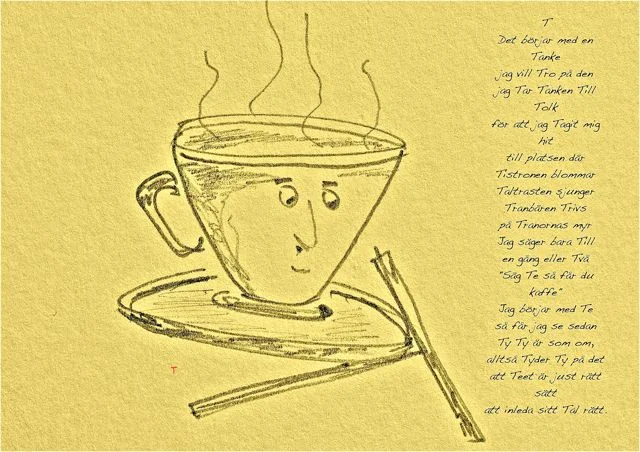 T
Det börjar med en
Tanke
jag vill Tro på den
jag Tar Tanken Till
Tolk
för att jag Tagit mig
hit
till platsen där
Tistronen blommar
Taltrasten sjunger
Tranbären Trivs
på Tranornas myr
Jag säger bara Till
en gång eller Två
"Säg Te så får du
kaffe"
Jag börjar med Te
så får jag se sedan
Ty Ty är som om,
alltså Tyder Ty på det
att Teet är just rätt
sätt
att inleda sitt Tal rätt.
T